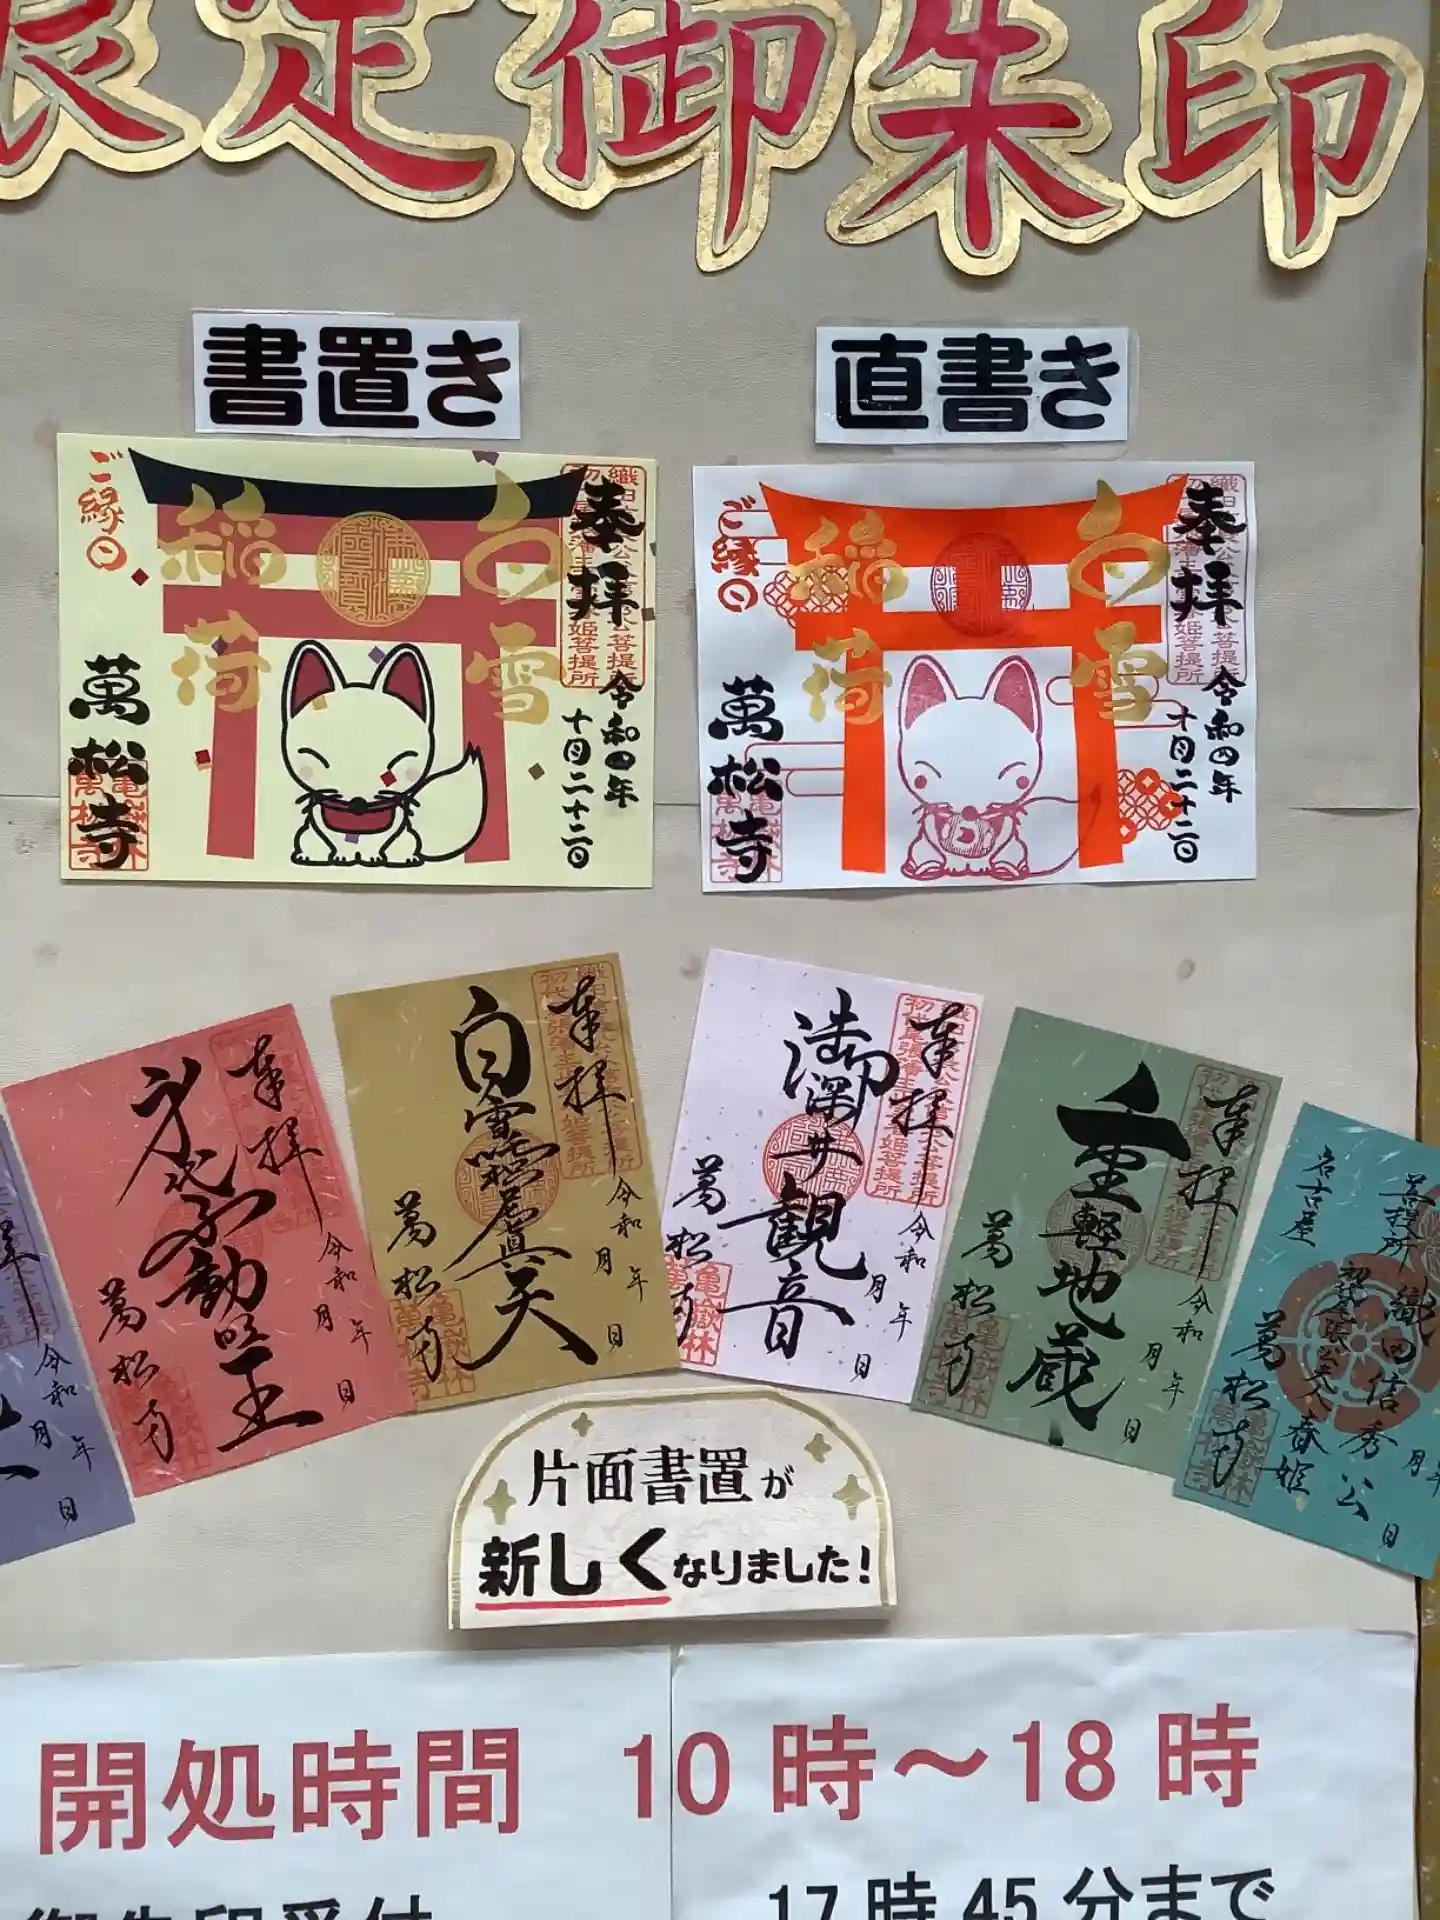 限定御朱印
書置き
直書き
ご縁日
白雪
稲荷
奉拝
令和四年
十月二十二日
萬松寺
ご縁日
白雪
稲荷
奉拝
令和四年
十月二十二日
萬松寺
令和 年
月 日
奉拝
不動明王
令和 年
月 日
萬松寺
奉拝
白雪
真天
令和 年
月 日
萬松寺
奉拝
御深井観音
令和 年
月 日
萬松寺
奉拝
重軽地蔵
令和 年
月 日
萬松寺
菩提所
織田信秀公
春姫
名古屋
萬松寺
月 日
片面書置が
新しくなりました!
開処時間 10時~18時
御朱印受付 17時45分まで